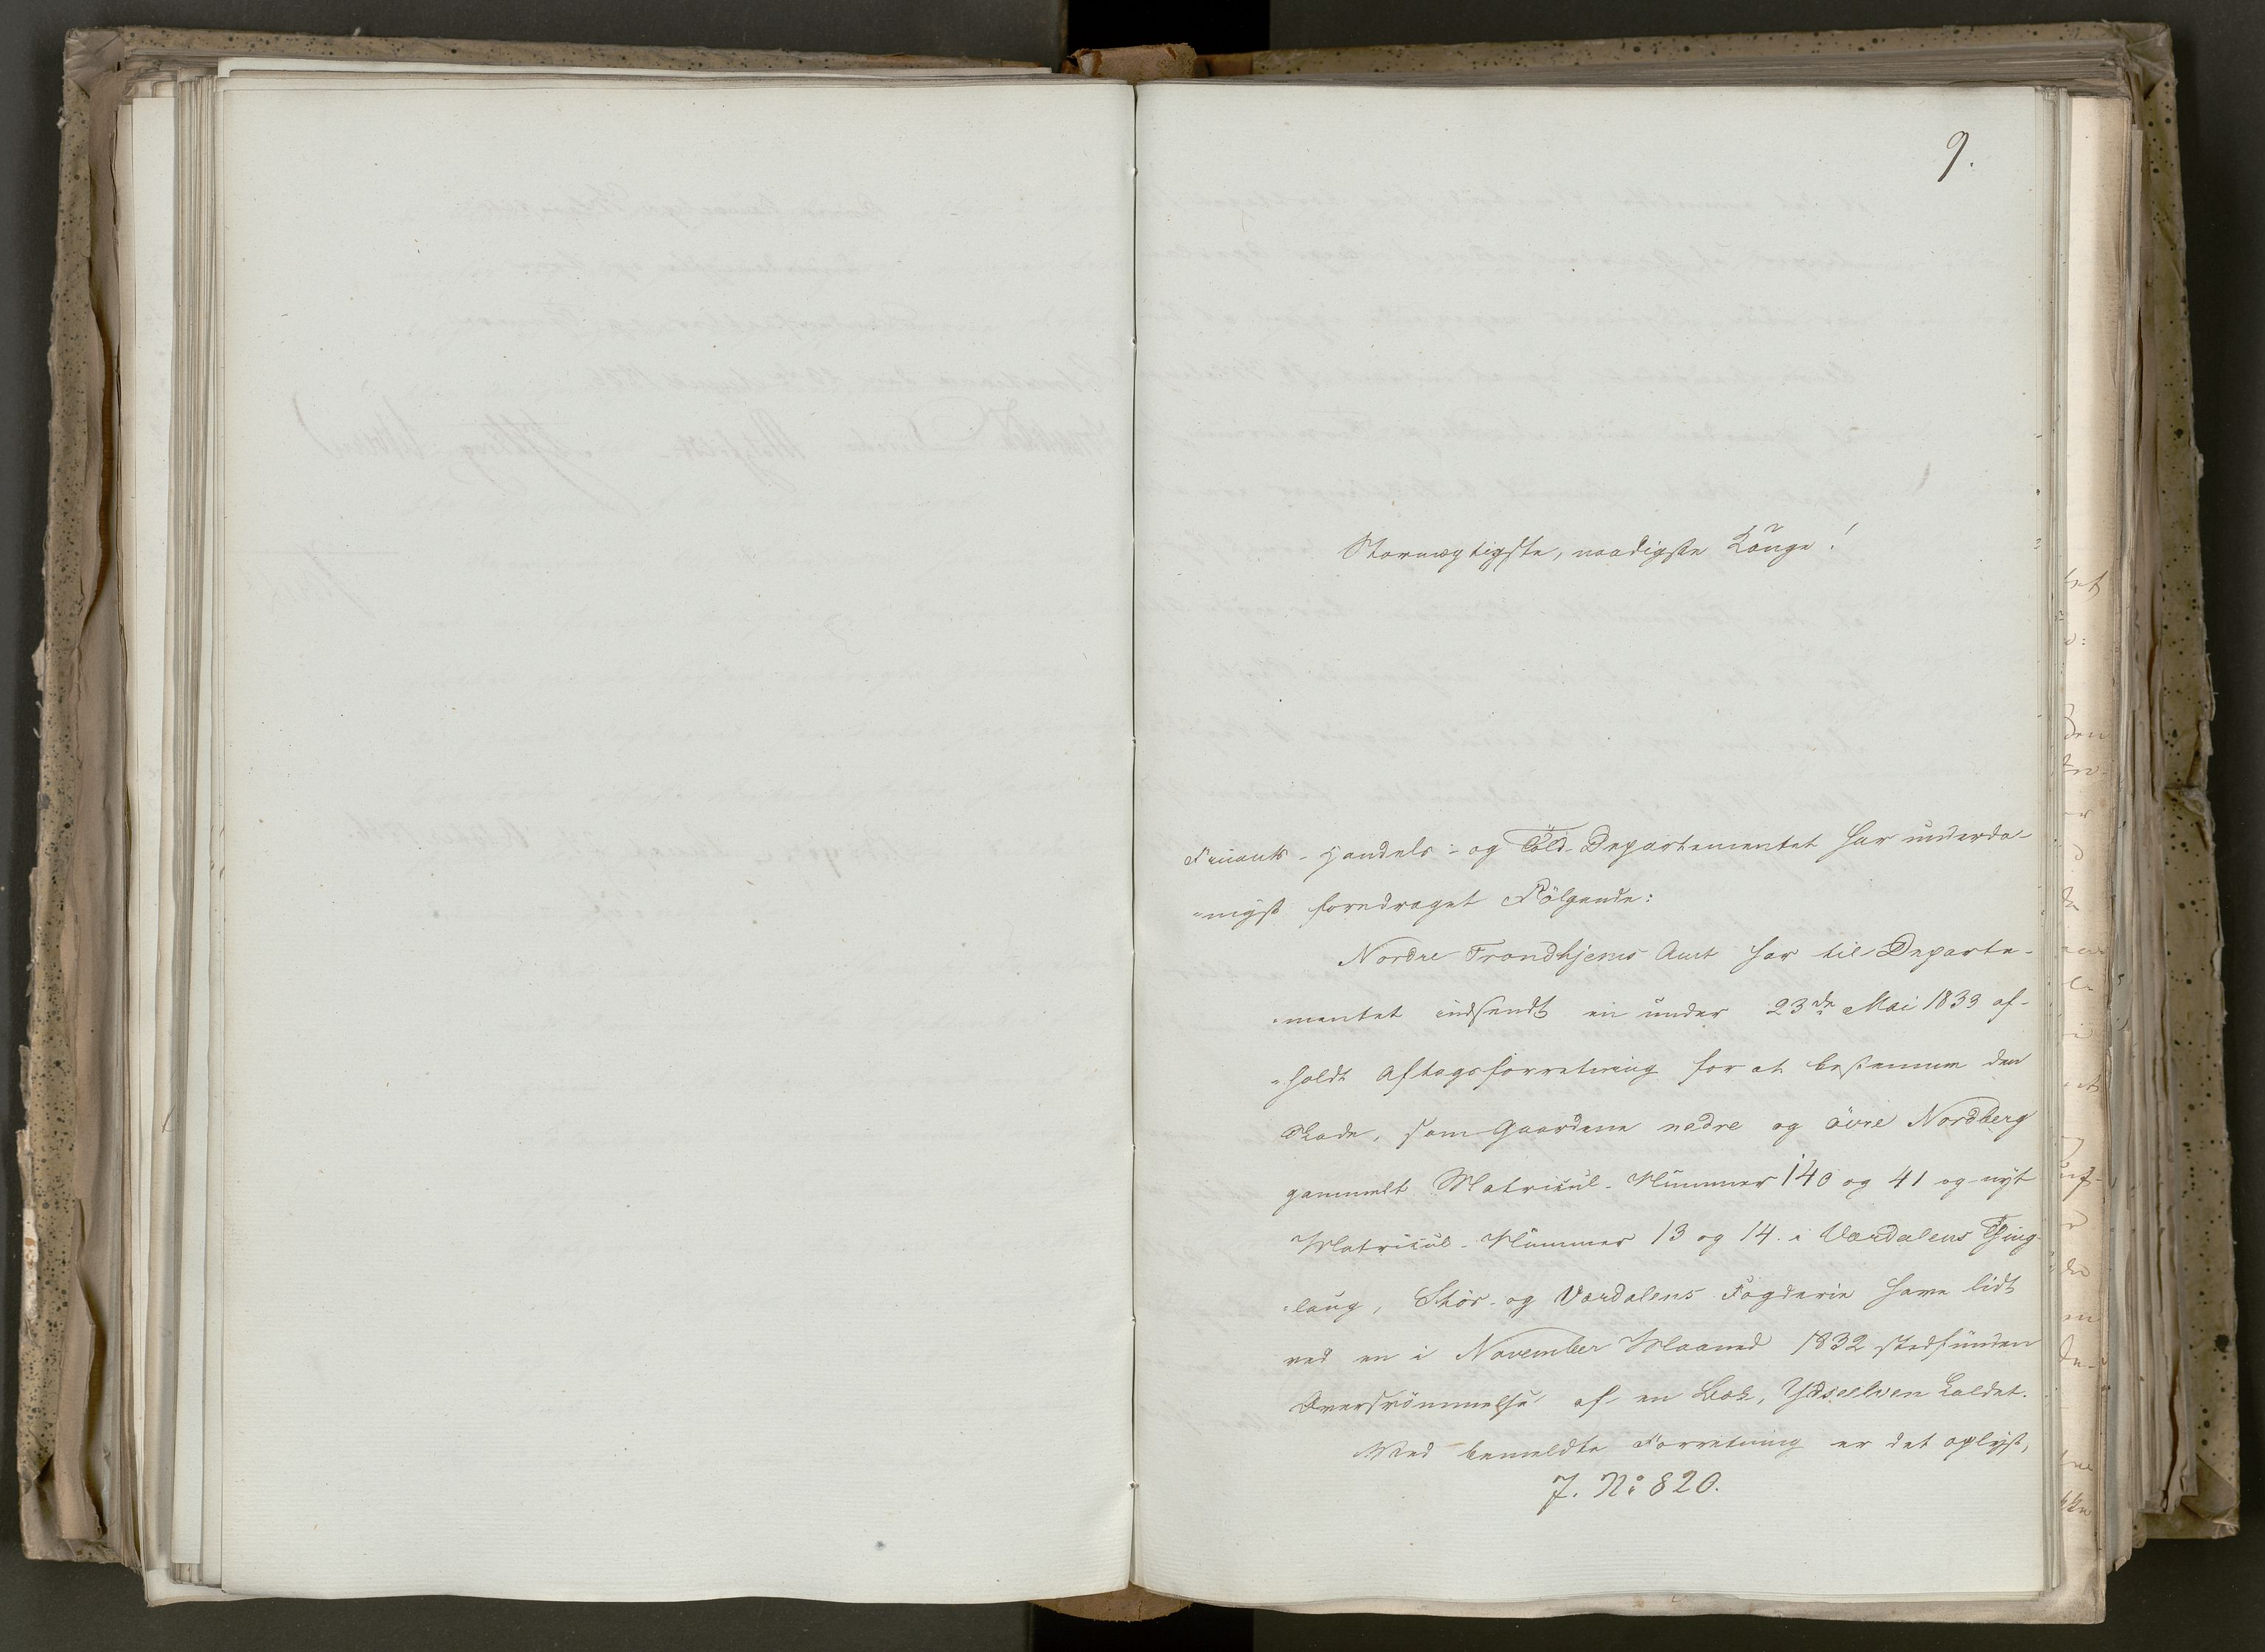 9.
Stormægtigste, naadigste Konge!
Finants- Handels- og Told-Departementet har underda-
-nigst foredraget Følgende:
Nordre Trondhjems Amt har til Departe-
-mentet indsendt en under 23de Mai 1833 af-
-holdt Aftagsforretning for at bestemme den
Skade, som Gaardene nedre og övre Nordberg
gammelt Matricul-Nummer 140 og 41 og nyt
Matricul-Nummer 13 og 14 i Værdalens Thing-
-laug, Stör- og Værdalens Fogderie have lidt
ved en i November Maaned 1832 stedfunden
Oversvömmelse af en Bæk, Ydseelven kaldet.
Ved bemeldte Forretning er det oplyst,
J. No 820.